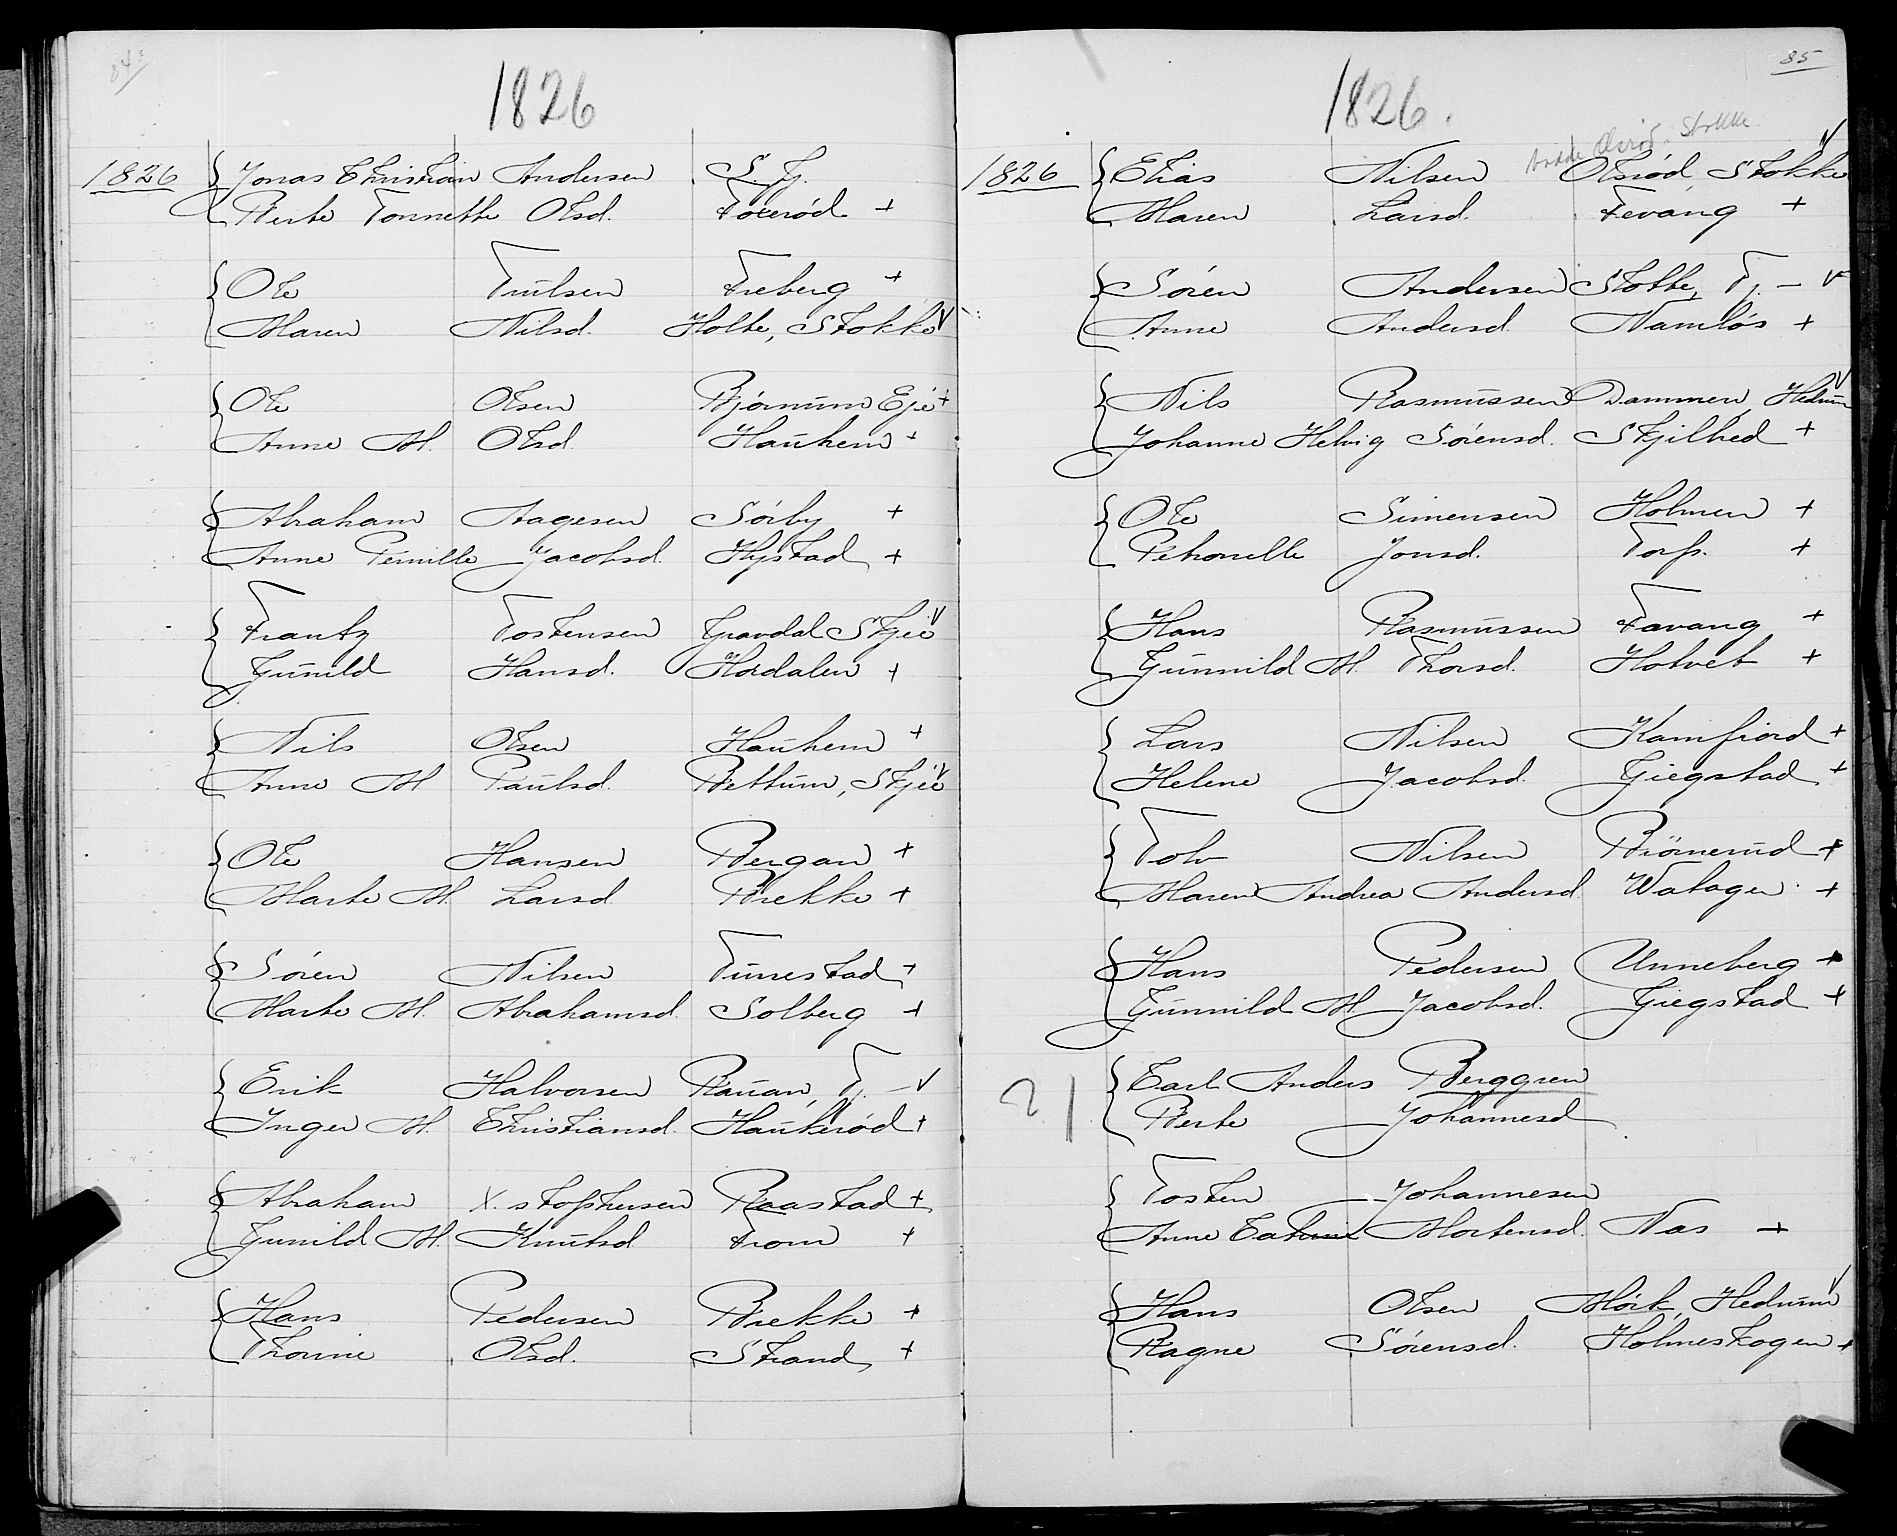 84
1826
1826 Jonas Christian Andersen S. Fj.
Berte Tonnette Olsd. Foxerød +
Ole Trulsen Freberg +
Maren Nilsd. Holte, Stokke V
Ole Olsen Bjørnum Eje +
Anne M. Olsd. Haukem +
Abraham Aagesen Sørby +
Anne Pernille Jacobsd. Hystad +
Frantz Tostensen Gravdal Skjee V
Gunild Hansd. Hordalen +
Nils Olsen Haukem +
Anne M Paulsd. Bettum, Skjee V
Ole Hansen Bergan +
Marte M. Larsd. Brekke +
Søren Nilsen Tunestad +
Marte M. Abrahamsd. Solberg +
Erik Halvorsen Rauan, Tj. – V
Inger M. Christiansd. Haukerød +
Abraham X.stophersen Raastad +
Gunild M. Knutsd. From +
Hans Pedersen Brekke +
Thorine Olsd. Strand +
85
1826.
Stokke
1826 Elias Nilsen Olsrød, Stokke V
Maren Larsd. Fevang +
Søren Andersen Stokke, Tj. – V
Anne Andersd. Namløs +
Nils Rasmussen Dammen, Hedrum V
Johanne Helvig Sørensd. Skjilhed +
Ole Simensen Holmen +
Petronelle Jonsd. Torp. +
Hans Rasmussen Favang +
Gunnild M. Thorsd. Hotvet +
Lars Nilsen Kamfiord +
Helene Jacobsd. Giegstad +
Tolv Nilsen Biörnerud +
Maren Andrea Andersd. Watager +
Hans Pedersen Unneberg +
Gunnild M. Jacobsd. Giegstad +
?| Carl Anders Berggren
Berte Johannesd
Tosten Johannesen
Anne Catrine Mortensd. Næs +
Hans Olsen Mørk, Hedrum V
Ragne Sørensd. Holmeskogen +